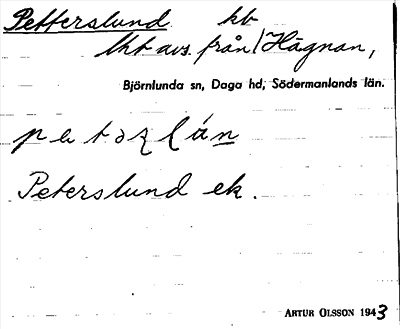 Petterslund kt
lht avs. från Hägnan,
Björnlunda sn, Daga hd, Södermanlands län.
Peterslund ek.
ARTUR OLSSON 1943